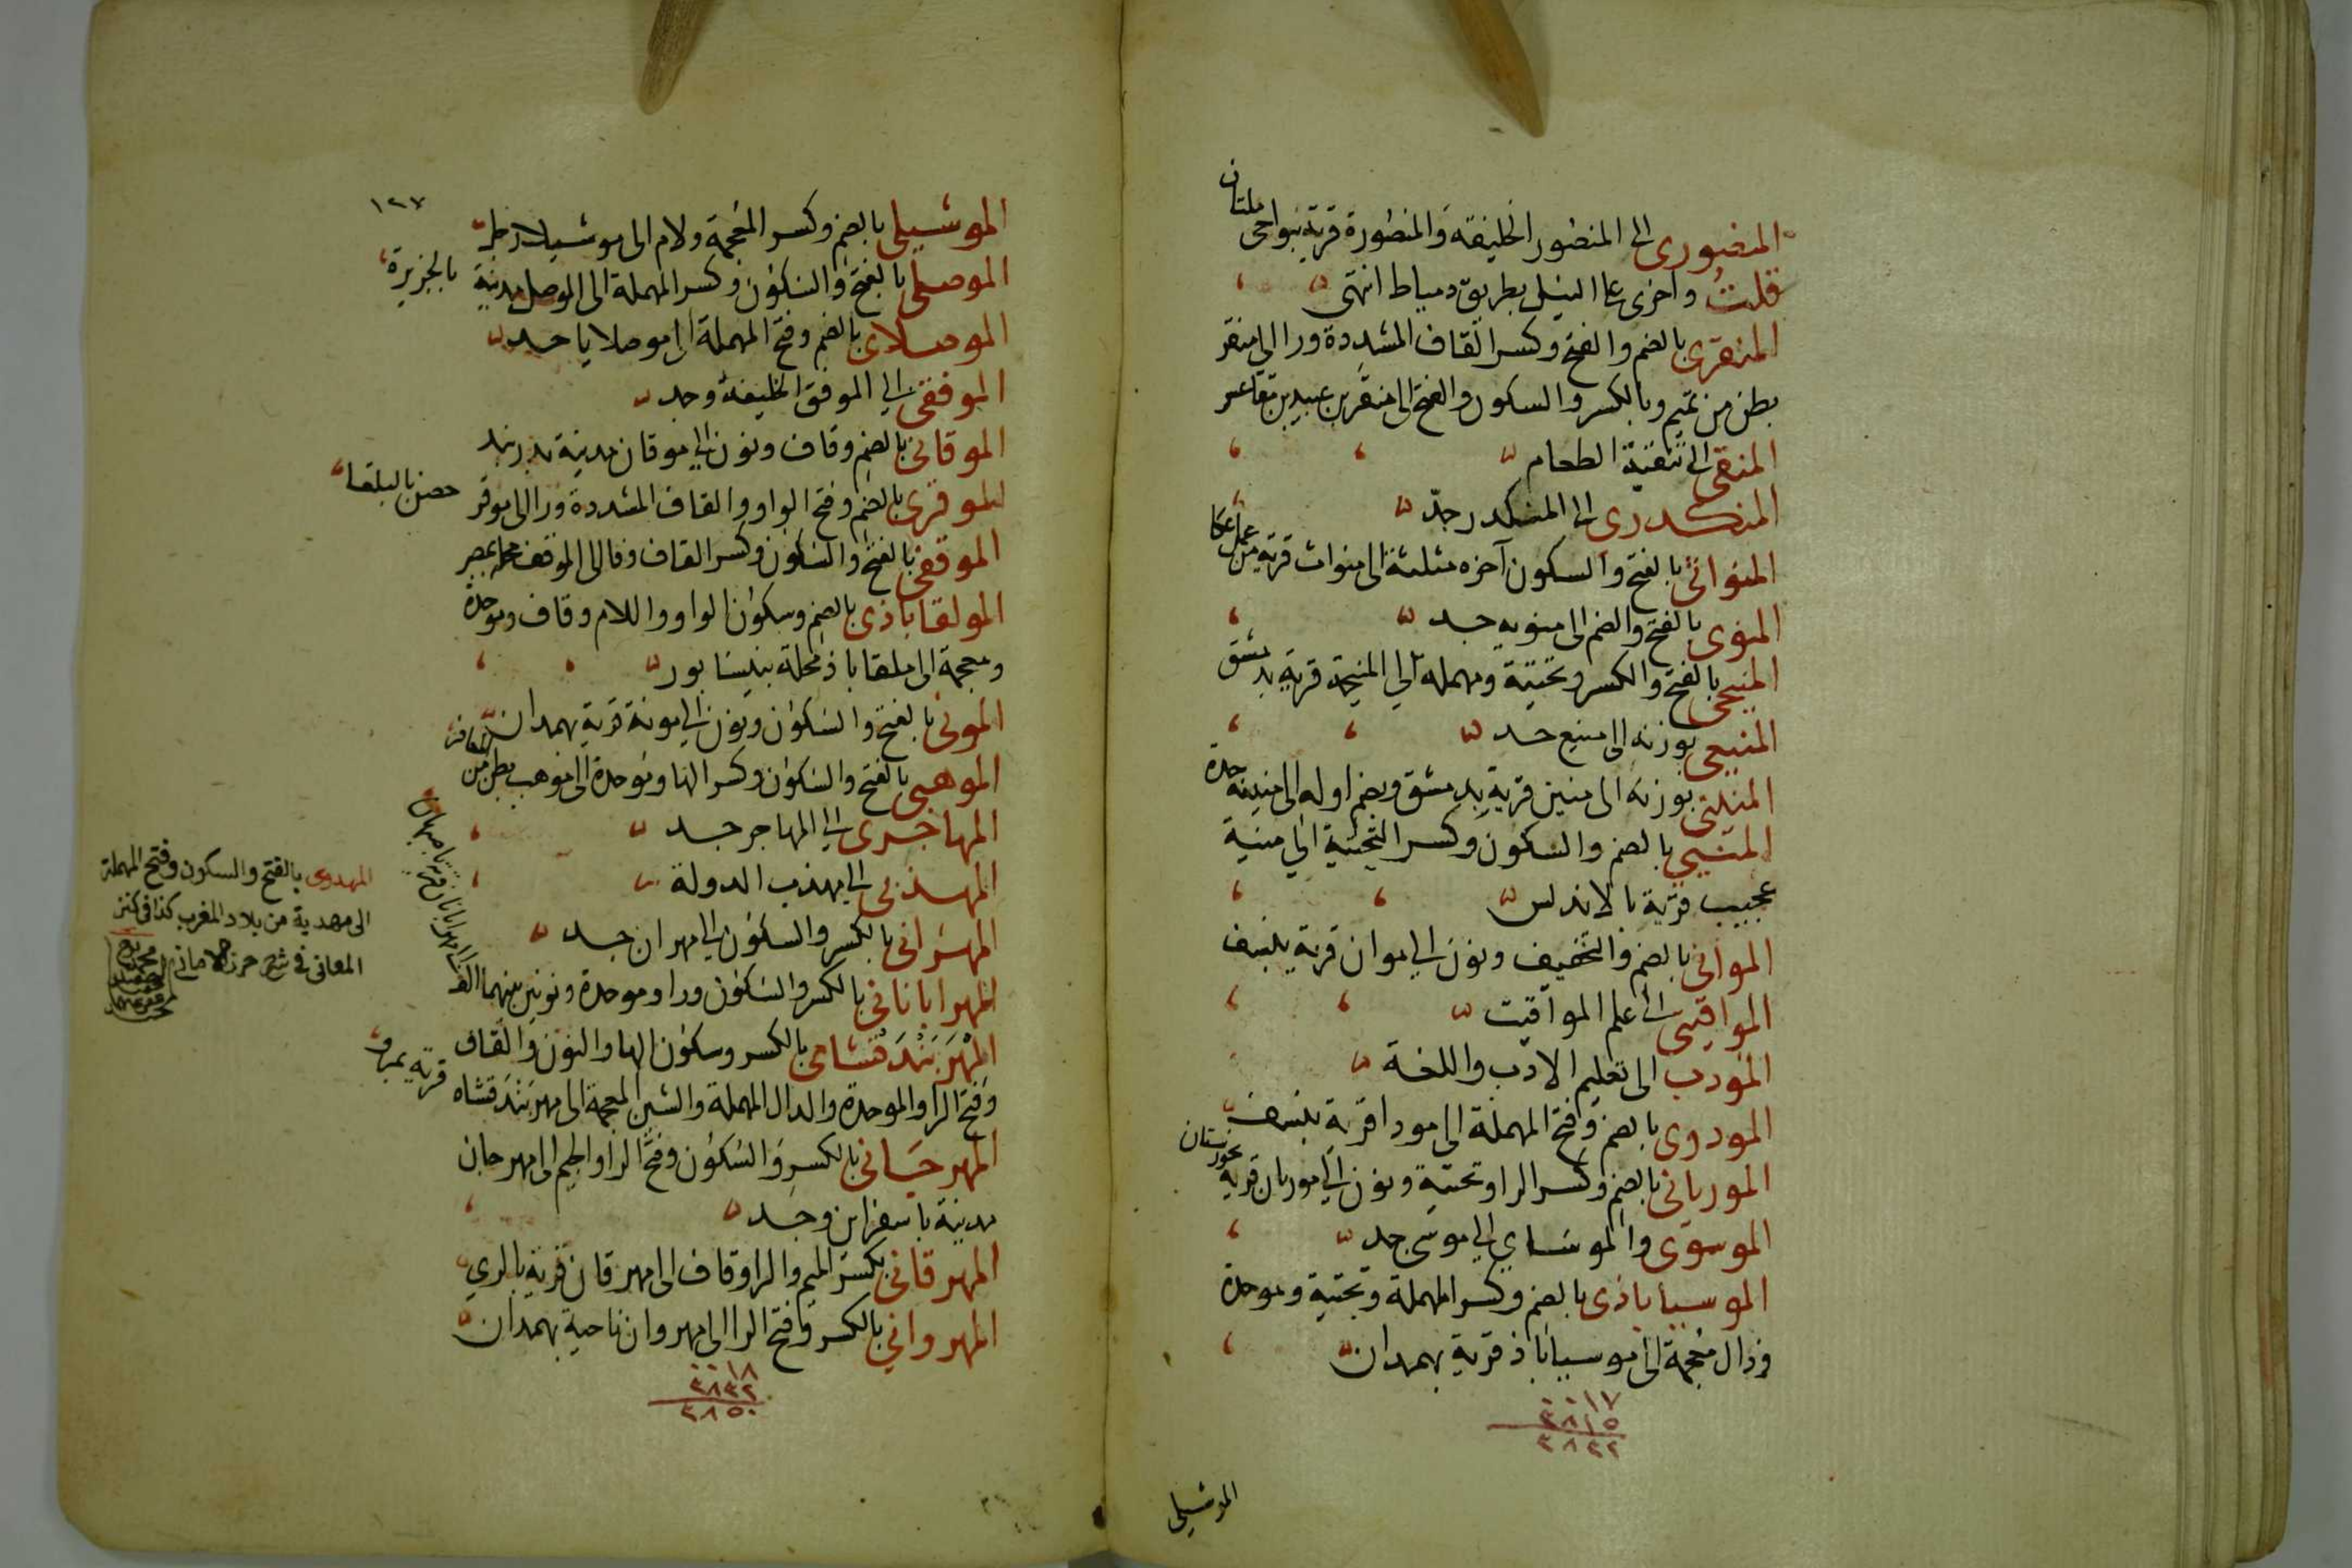 المنصورى الى المنصور الخليفة والمنصورة قرية بنواحى ملتان
قلت واخرى على النيل بطريق دمياط انتهى
المنقرى بالضم والفتح وكسر القاف المشددة ورا الى منقر
بطن من تميم وبالكسر والسكون والفتح الى منقر بن عبيد بن مقاعس
المنقى الى تنقية الطعام
المنكدرى الى المنكدر جد
المنواثى بالفتح والسكون آخره مثلثة الى منواث قرية من عمل عكا
المنوى بالفتح والضم الى منويه جد
المنيحى بالفتح والكسر وتحتية ومهملة الى المنيحة قرية بدمشق
المنيعى بوزنه الى منيع جد
المنينى بوزنه الى منين قرية بدمشق وبضم اوله الى منينة جدة
المنيى بالضم والسكون وكسر التحتية الى منية
عجيب قرية بالاندلس
الموانى بالضم والتخفيف ونون الى موان قرية بنسف
المواقيتى الى علم المواقيت
المودب الى تعليم الادب واللغة
المودوى بالضم وفتح المهملة الى مودا قرية بنسف
الموريانى بالضم وكسر الرا وتحتية ونون الى موريان قرية بخوزستان
الموسوى والموساى الى موسى جد
الموسياباذى بالضم وكسر المهملة وتحتية وموحدة
وذال معجمة الى موسياباذ قرية بهمدان
١٧
٣٨١٥
٣٨٣٢
الموشيلى
١٢٧
الموشيلى بالضم وكسر المعجمة ولام الى موشيلا رجل
الموصلى بالفتح والسكون وكسر المهملة الى الموصل مدينة بالجزيرة
الموصلاى بالضم وفتح المهملة الى موصلايا جد
الموفقى الى الموفق الخليفة وجد
الموقانى بالضم وقاف ونون الى موقان مدينة بدربند
الموقرى بالضم وفتح الواو والقاف المشددة ورا الى موقر حصن بالبلقا
الموقفى بالفتح والسكون وكسر القاف وفا الى الموقف محلة بمصر
المولقاباذى بالضم وسكون الواو واللام وقاف وموحدة
ومعجمة الى ملقاباذ محلة بنيسابور
المونى بالفتح والسكون ونون الى مونة قرية بهمدان
الموهبى بالفتح والسكون وكسر الها وموحدة الى موهب بطن من المعافر
المهاجرى الى المهاجر جد
المهذبى الى مهذب الدولة
المهرانى بالكسر والسكون الى مهران جد
المهراباناى بالكسر والسكون ورا وموحدة ونونين بينهما الف
المهربندقشاى بالكسر وسكون الها والنون والقاف
وفتح الرا والموحدة والدال المهملة والشين المعجمة الى مهربندقشاه قرية بمرو
المهرجانى بالكسر والسكون وفتح الرا والجيم الى مهرجان
مدينة باسفراين وجد
المهرقانى بكسر الميم والرا وقاف الى مهرقان قرية بالرى
المهروانى بالكسر وفتح الرا الى مهروان ناحية بهمدان
١٨
٣٨٣٢
٣٨٥٠
المهدوى بالفتح والسكون وفتح المهملة
الى مهدية من بلاد المغرب كذا فى كنز
المعانى فى شرح حرز الامانى